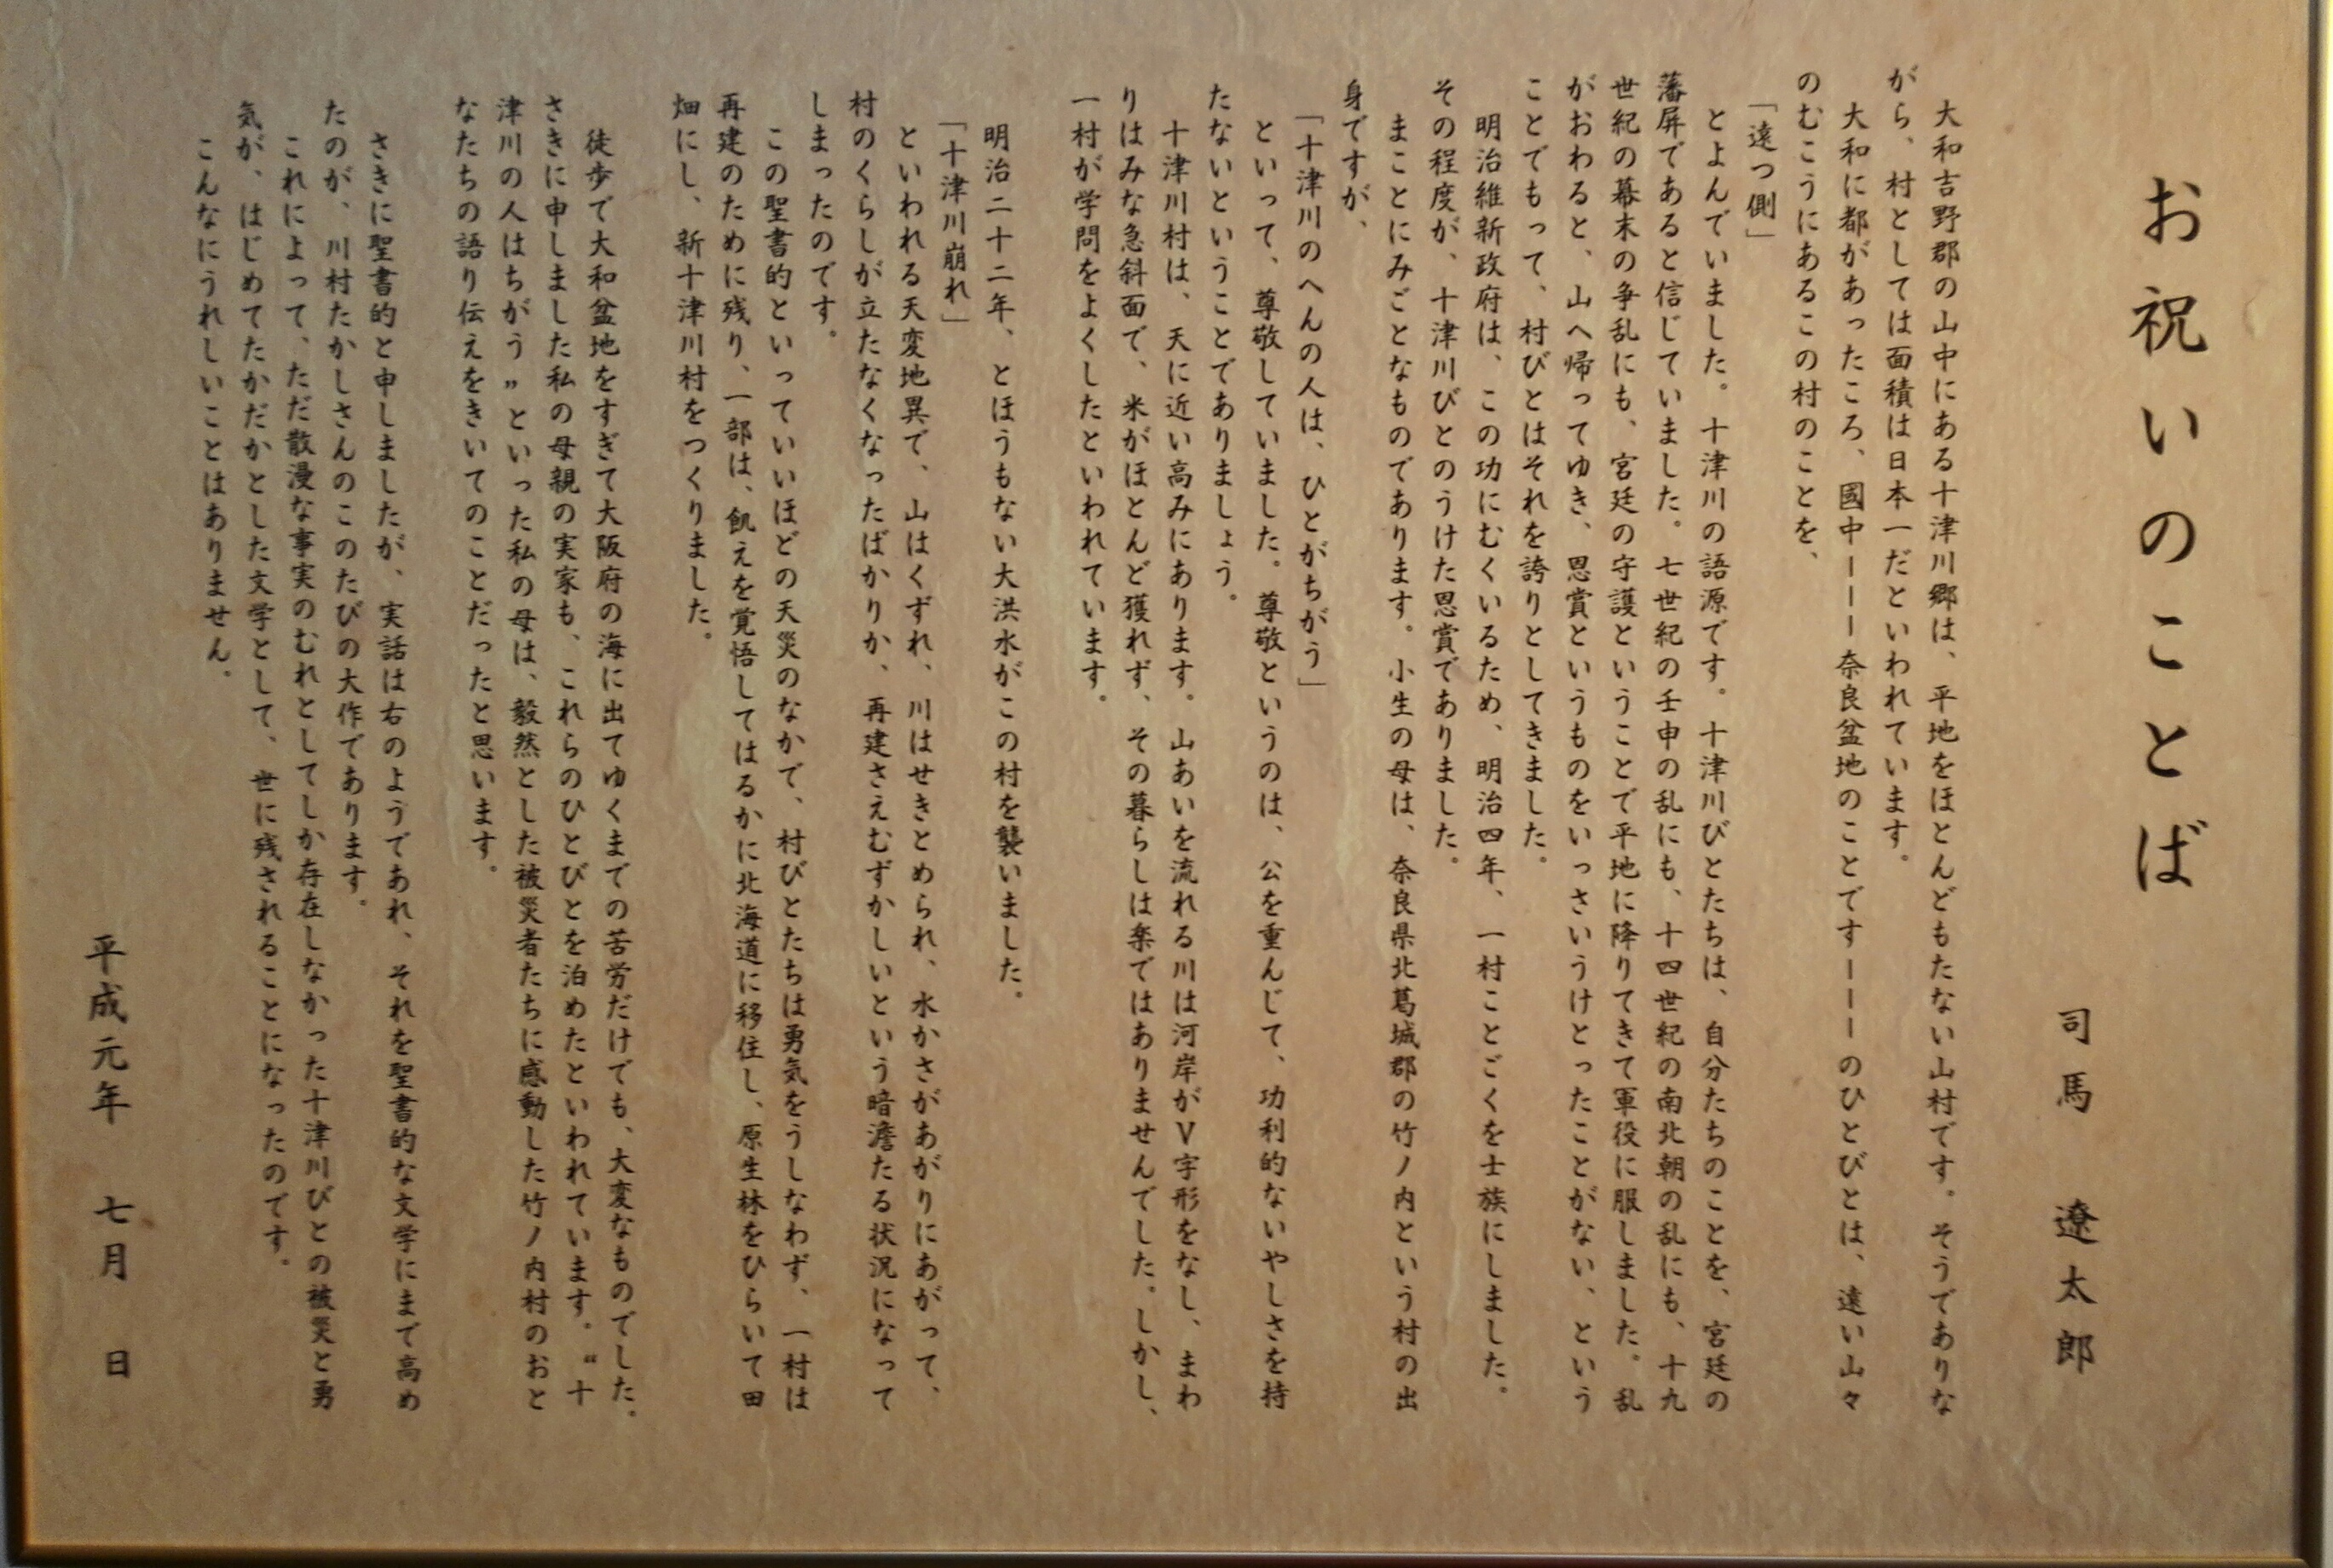 お祝いのことば
司馬 遼太郎
大和吉野郡の山中にある十津川郷は、平地をほとんどもたない山村です。そうでありな
がら、村としては面積は日本一だといわれています。
大和に都があったころ、國中ーーー奈良盆地のことですーーーのひとびとは、遠い山々
のむこうにあるこの村のことを、
「遠つ側」
とよんでいました。十津川の語源です。十津川びとたちは、自分たちのことを、宮廷の
藩屏であると信じていました。七世紀の壬申の乱にも、十四世紀の南北朝の乱にも、十九
世紀の幕末の争乱にも、宮廷の守護ということで平地に降りてきて軍役に服しました。乱
がおわると、山へ帰ってゆき、恩賞というものをいっさいうけとったことがない、という
ことでもって、村びとはそれを誇りとしてきました。
明治維新政府は、この功にむくいるため、明治四年、一村ことごくを士族にしました。
その程度が、十津川びとのうけた恩賞でありました。
まことにみごとなものであります。小生の母は、奈良県北葛城郡の竹ノ内という村の出
身ですが、
「十津川のへんの人は、ひとがちがう」
といって、尊敬していました。尊敬というのは、公を重んじて、功利的ないやしさを持
たないということでありましょう。
十津川村は、天に近い高みにあります。山あいを流れる川は河岸がV字形をなし、まわ
りはみな急斜面で、米がほとんど獲れず、その暮らしは楽ではありませんでした。しかし、
一村が学問をよくしたといわれています。
明治二十二年、とほうもない大洪水がこの村を襲いました。
「十津川崩れ」
といわれる天変地異で、山はくずれ、川はせきとめられ、水かさがあがりにあがって、
村のくらしが立たなくなったばかりか、再建さえむずかしいという暗澹たる状況になって
しまったのです。
この聖書的といっていいほどの天災のなかで、村びとたちは勇気をうしなわず、一村は
再建のために残り、一部は、飢えを覚悟してはるかに北海道に移住し、原生林をひらいて田
畑にし、新十津川村をつくりました。
徒歩で大和盆地をすぎて大阪府の海に出てゆくまでの苦労だけでも、大変なものでした。
さきに申しました私の母親の実家も、これらのひとびとを泊めたといわれています。〝十
津川の人はちがう〟といった私の母は、毅然とした被災者たちに感動した竹ノ内村のおと
なたちの語り伝えをきいてのことだったと思います。
さきに聖書的と申しましたが、実話は右のようであれ、それを聖書的な文学にまで高め
たのが、川村たかしさんのこのたびの大作であります。
これによって、ただ散漫な事実のむれとしてしか存在しなかった十津川びとの被災と勇
気が、はじめてたかだかとした文学として、世に残されることになったのです。
こんなにうれしいことはありません。
平成元年 七月 日